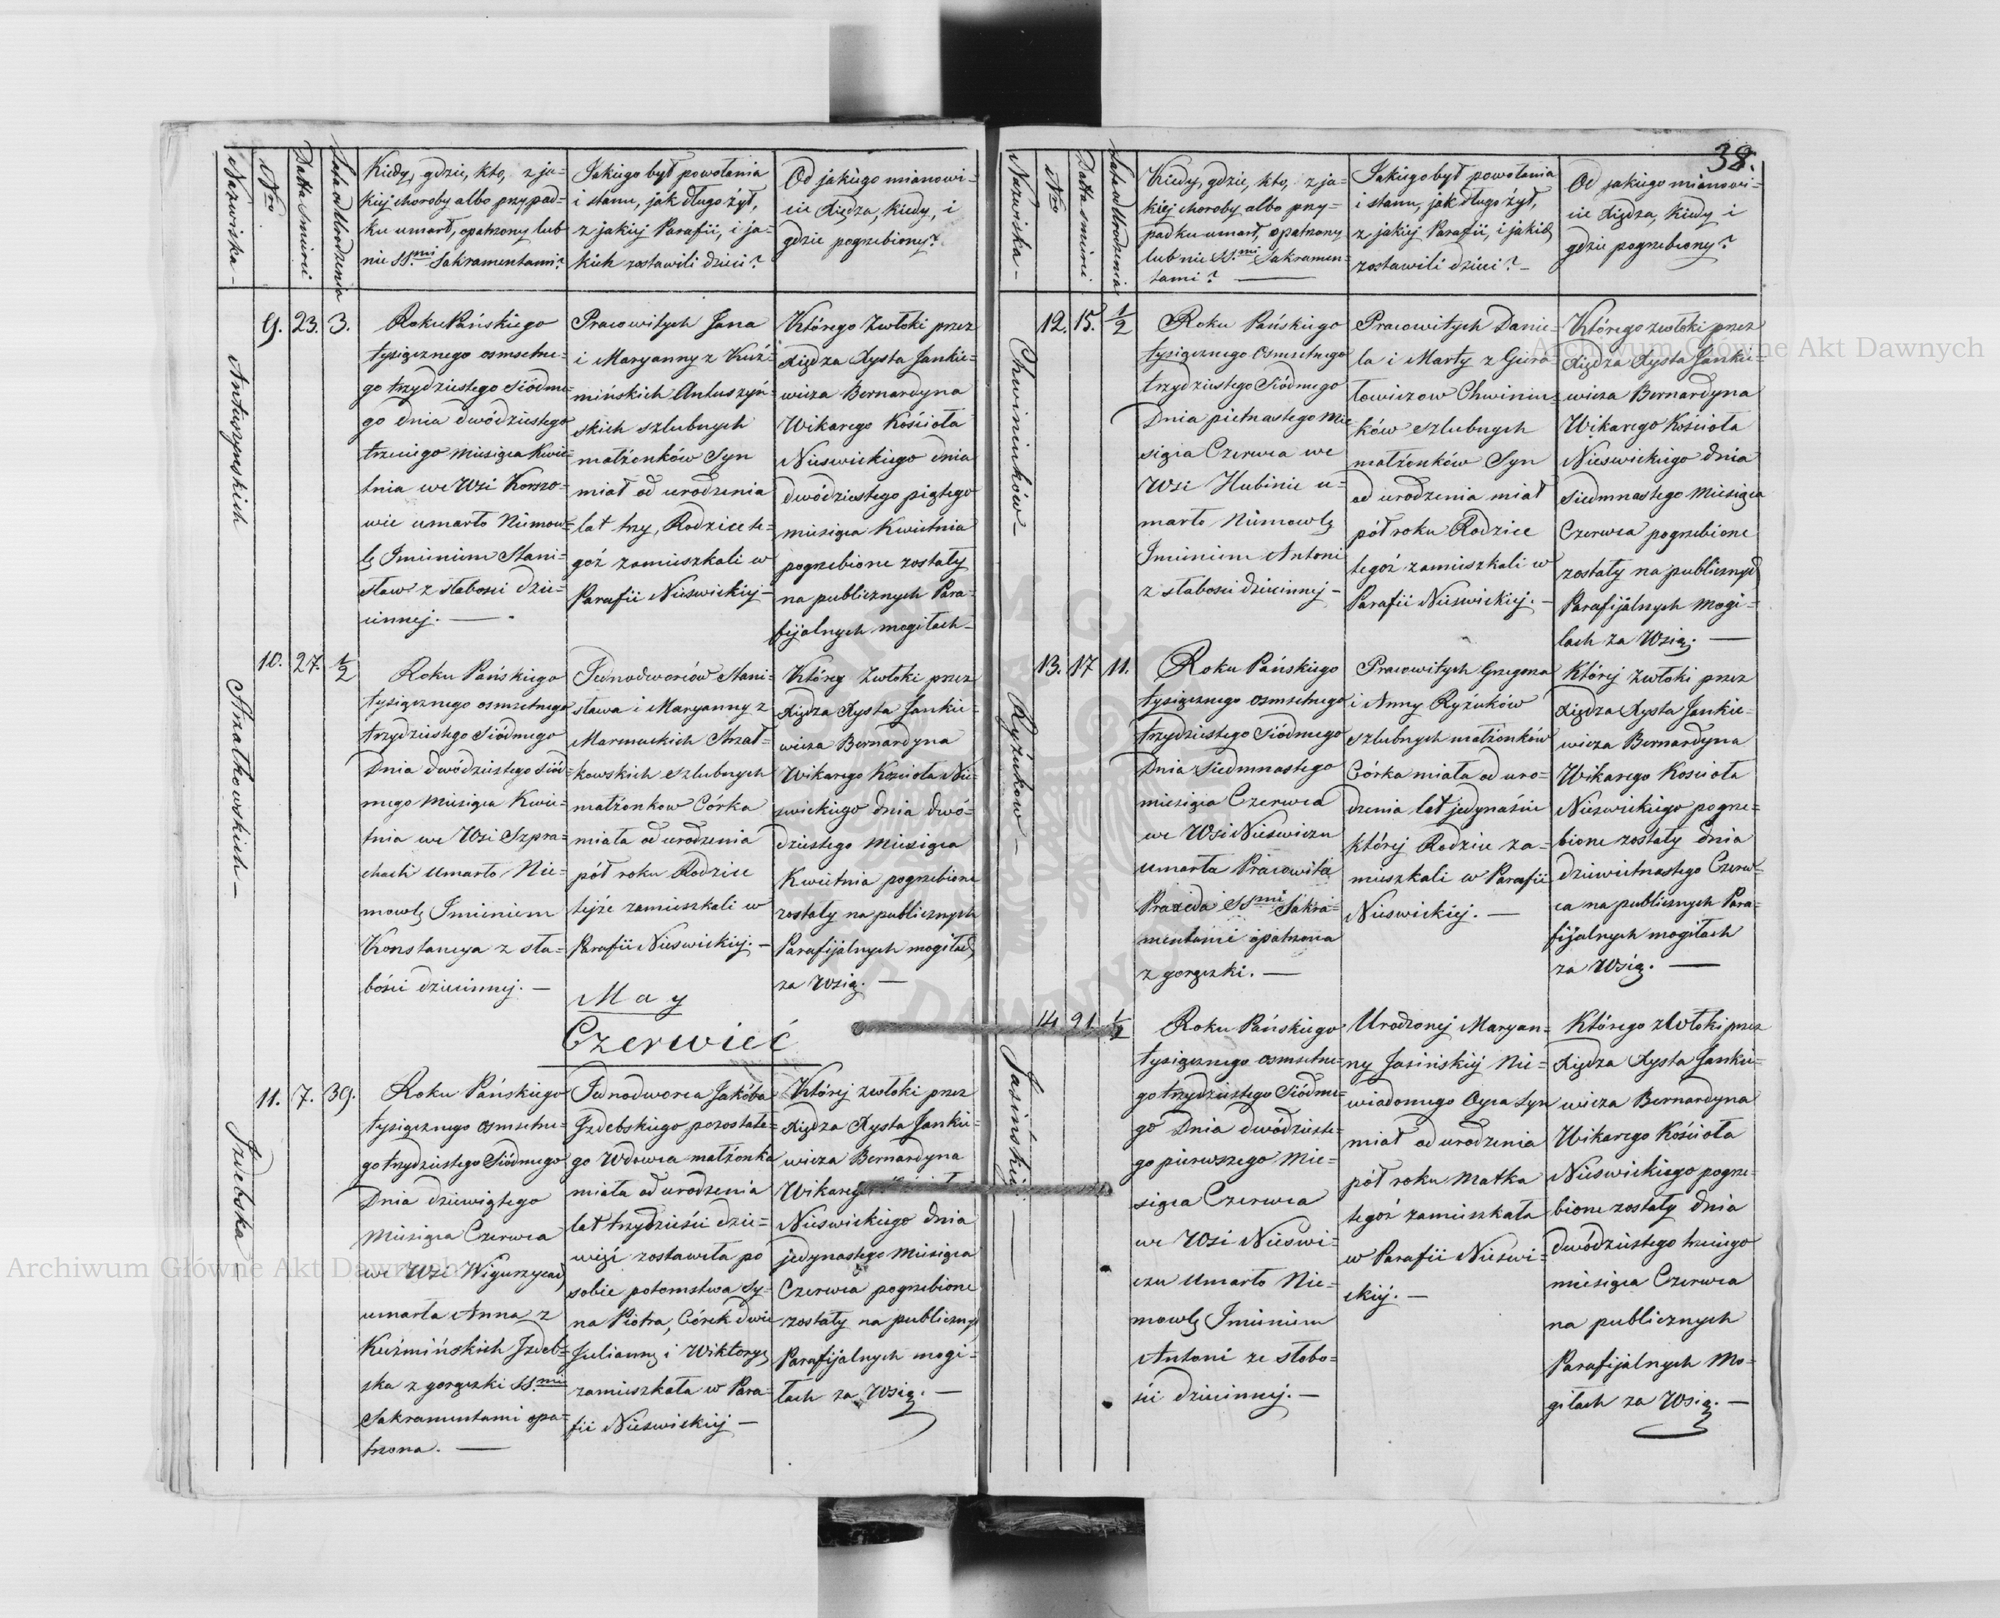 Nazwiska –
Nro
Datta śmierci
Lata od Urodzenia
Kiedy, gdzie, kto, z ja-
kiej choroby albo przypad-
ku umarł, opatrzony lub
nie SS.mi Sakramentami?
Jakiego był powołania
i stanu, jak długo żył,
z jakiej Parafii, i ja-
kich zostawili dzieci?
Od jakiego mianowi-
cie Xiędza, kiedy, i
gdzie pogrzebiony?
Antuszyńskich
9. 23. 3.
Roku Pańskiego
tysiącznego osmsetne-
go trzydziestego Siódme-
go dnia dwódziestego
trzeciego miesiąca Kwie-
tnia we Wsi Korszo-
wie umarło Niemow-
lę Imieniem Stani-
sław z słabości dzie-
cinnej. —
Pracowitych Jana
i Maryanny z Kuź-
mińskich Antuszyń-
skich szlubnych
małżonków Syn
miał od urodzenia
lat trzy, Rodzice te-
goż zamieszkali w
Parafii Nieswickiej –
Którego Zwłoki przez
Xiędza Xysta Jankie-
wicza Bernardyna
Wikarego Kościoła
Nieswickiego dnia
dwódziestego piątego
miesiąca Kwietnia
pogrzebione zostały
na publicznych Para-
fijalnych mogiłach –
Strzałkowskich –
10. 27. 1/2
Roku Pańskiego
tysiącznego osmsetnego
trzydziestego Siódmego
Dnia dwódziestego siód-
mego miesiąca Kwie-
tnia we Wsi Szpra-
chach umarło Nie-
mowlę Imieniem
Konstancya z sła-
bości dziecinnej. –
Jednodworców Stani-
sława i Maryanny z
Strzał-
kowskich szlubnych
małżonkow Córka
miała od urodzenia
pół roku Rodzice
tejże zamieszkali w
Parafii Nieswickiej. –
Której Zwłoki przez
Xiędza Xysta Jankie-
wicza Bernardyna
Wikarego Kościoła Nie-
swickiego dnia dwó-
dziestego miesiąca
Kwietnia pogrzebione
zostały na publicznych
Parafijalnych mogiłach
za Wsią. –
May
Czerwieć
Izdebska –
11. 7. 39.
Roku Pańskiego
tysiącznego osmsetne-
go trzydziestego Siódmego
Dnia dziewiątego
Miesiąca Czerwca
we Wsi
umarła Anna z
Kuźmińskich Izdeb-
ska z gorączki SS.mi
Sakramentami opa-
trzona. —
Jednodworca Jakóba
Izdebskiego pozostałe-
go Wdowca małżonka
miała od urodzenia
lat trzydzieści dzie-
więć zostawiła po
sobie potomstwa Sy-
na Piotra, Córek dwie
Juliannę i Wiktoryę
zamieszkała w Para-
fii Nieswickiej –
Której zwłoki przez
Xiędza Xysta Jankie-
wicza Bernardyna
Wikarego
Nieswickiego dnia
jedynastego Miesiąca
Czerwca pogrzebione
zostały na publicznych
Parafijalnych mogi-
łach za Wsią. –
38.
Nazwiska –
Nro
Datta śmierci
Lata od Urodzenia
Kiedy, gdzie, kto, z ja-
kiej choroby albo przy-
padku umarł, opatrzony
lub nie SS.mi Sakramen-
tami? —
Jakiego był powołania
i stanu, jak długo żył,
z jakiej Parafii, i jakich
zostawili dzieci? –
Od jakiego mianowi-
cie Xiędza, kiedy i
gdzie pogrzebiony?
Chwiniuków –
12. 15. 1/2
Roku Pańskiego
tysiącznego Osmsetnego
trzydziestego Siódmego
Dnia pietnastego Mie
siąca Czerwca we
Wsi Hubinie u-
marło Niemowlę
Imieniem Antoni
z słabości dziecinnej –
Pracowitych Danie-
la i Marty z Gieró-
łowiczow Chwiniu-
ków szlubnych
małżonków Syn
od urodzenia miał
pół roku Rodzice
tegoż zamieszkali w
Parafii Nieswickiej. –
Którego zwłoki przez
Xiędza Xysta Jankie-
wicza Bernardyna
Wikarego Kościoła
Nieswickiego dnia
siedmnastego Miesiąca
Czerwca pogrzebione
zostały na publicznych
Parafijalnych Mogi-
łach za Wsią. —
Ryżuków –
13. 17 11.
Roku Pańskiego
tysiącznego osmsetnego
trzydziestego Siódmego
Dnia Siedmnastego
miesiąca Czerwca
we Wsi Nieswiczu
umarła Pracowita
Praxeda SS.mi Sakra-
mentami opatrzona
z gorączki. —
Pracowitych Grzegorza
i Anny Ryżuków
szlubnych małżonków
Córka miała od uro-
dzenia lat jedynaście
której Rodzice za-
mieszkali w Parafii
Nieswickiej. —
Której zwłoki przez
Xiędza Xysta Jankie-
wicza Bernardyna
Wikarego Kościoła
Nieswickiego pogrze-
bione zostały dnia
dziewietnastego Czerw-
ca na publicznych Para-
fijalnych mogiłach
za Wsią. —
Jasińskiej. —
14 21 1/2
Roku Pańskiego
tysiącznego osmsetne-
go trzydziestego Siódme-
go Dnia dwódzieste-
go pierwszego Mie-
siąca Czerwca
we Wsi Nieswi-
czu umarło Nie-
mowlę Imieniem
Antoni ze słabo-
ści dziecinnej. –
Urodzonej Maryan-
ny Jasińskiej Nie-
wiadomego Oyca Syn
miał od urodzenia
pół roku Matka
tegoż zamieszkała
w Parafii Nieswi-
ckiej. –
Którego zwłoki przez
Xiędza Xysta Jankie-
wicza Bernardyna
Wikarego Kościoła
Nieswickiego pogrze-
bione zostały dnia
dwódziestego trzeciego
miesiąca Czerwca
na publicznych
Parafijalnych Mo-
giłach za Wsią. –
Archiwum Główne Akt Dawnych
Archiwum Główne Akt Dawnych